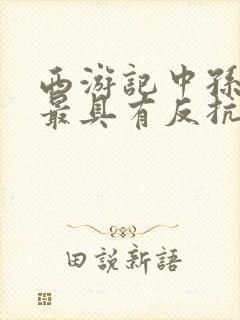 西游記中孫
最具有反抗
田説新語